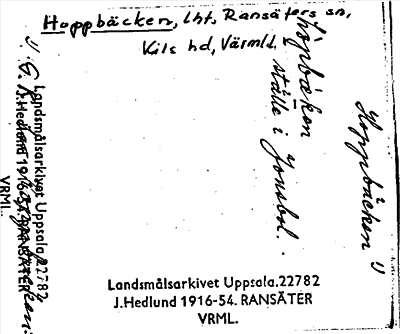 Hoppbäcken, lht, Ransäters sn,
Kils hd, Värml.
Höpbäken
ställe i Jonsbol.
Hoppbäcken 1)
Landsmålsarkivet Uppsala.22782
J.Hedlund 1916-54. RANSÄTER
VRML.
Landsmålsarkivet Uppsala 22782
J.Hedlund 1916-54. RANSÄTER
VRML.